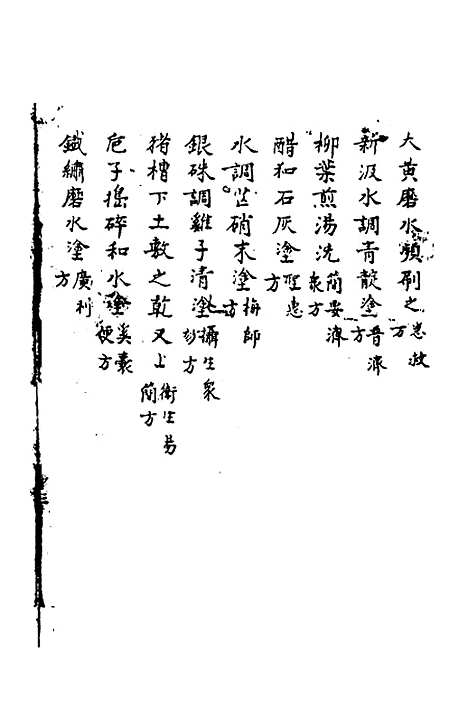 大黃磨水頻刷之急救方
新汲水調青靛塗普濟方
柳葉煎湯洗簡要濟衆方
醋和石灰塗聖惠方
水調芒硝末塗梅師方
銀硃調雞子清塗攝生衆妙方
猪槽下土敷之乾又上衛生易簡方
巵子搗碎和水塗奚囊便方
鐵繡磨水塗廣利方